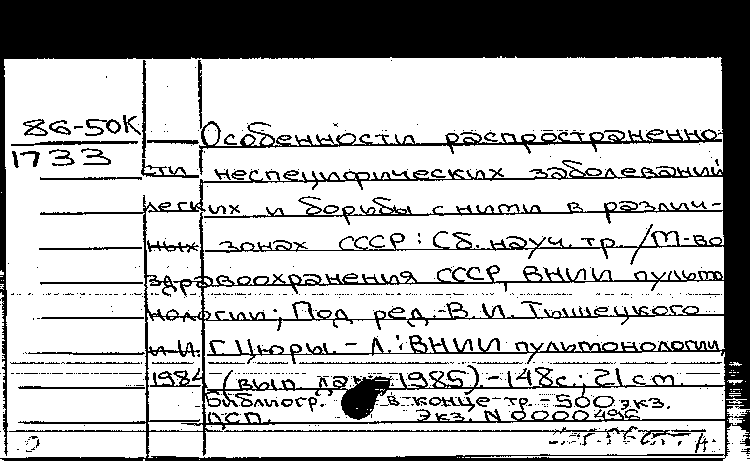 86-50К
1733
Особенности распространенно-
сти неспецифических заболеваний
легких и борьбы с ними в различ-
ных зонах СССР: Сб. науч. тр. / М-во
здравоохранения СССР, ВНИИ пульмо
нологии; Под ред. В. И. Тышецкого
и И. Г. Цюры. - Л.: ВНИИ пульмонологии,
1984 (вып. дан. 1985). - 148с.; 21 см.
Библиогр. в конце тр. - 500 экз.
ДСП. Экз. N 0000496